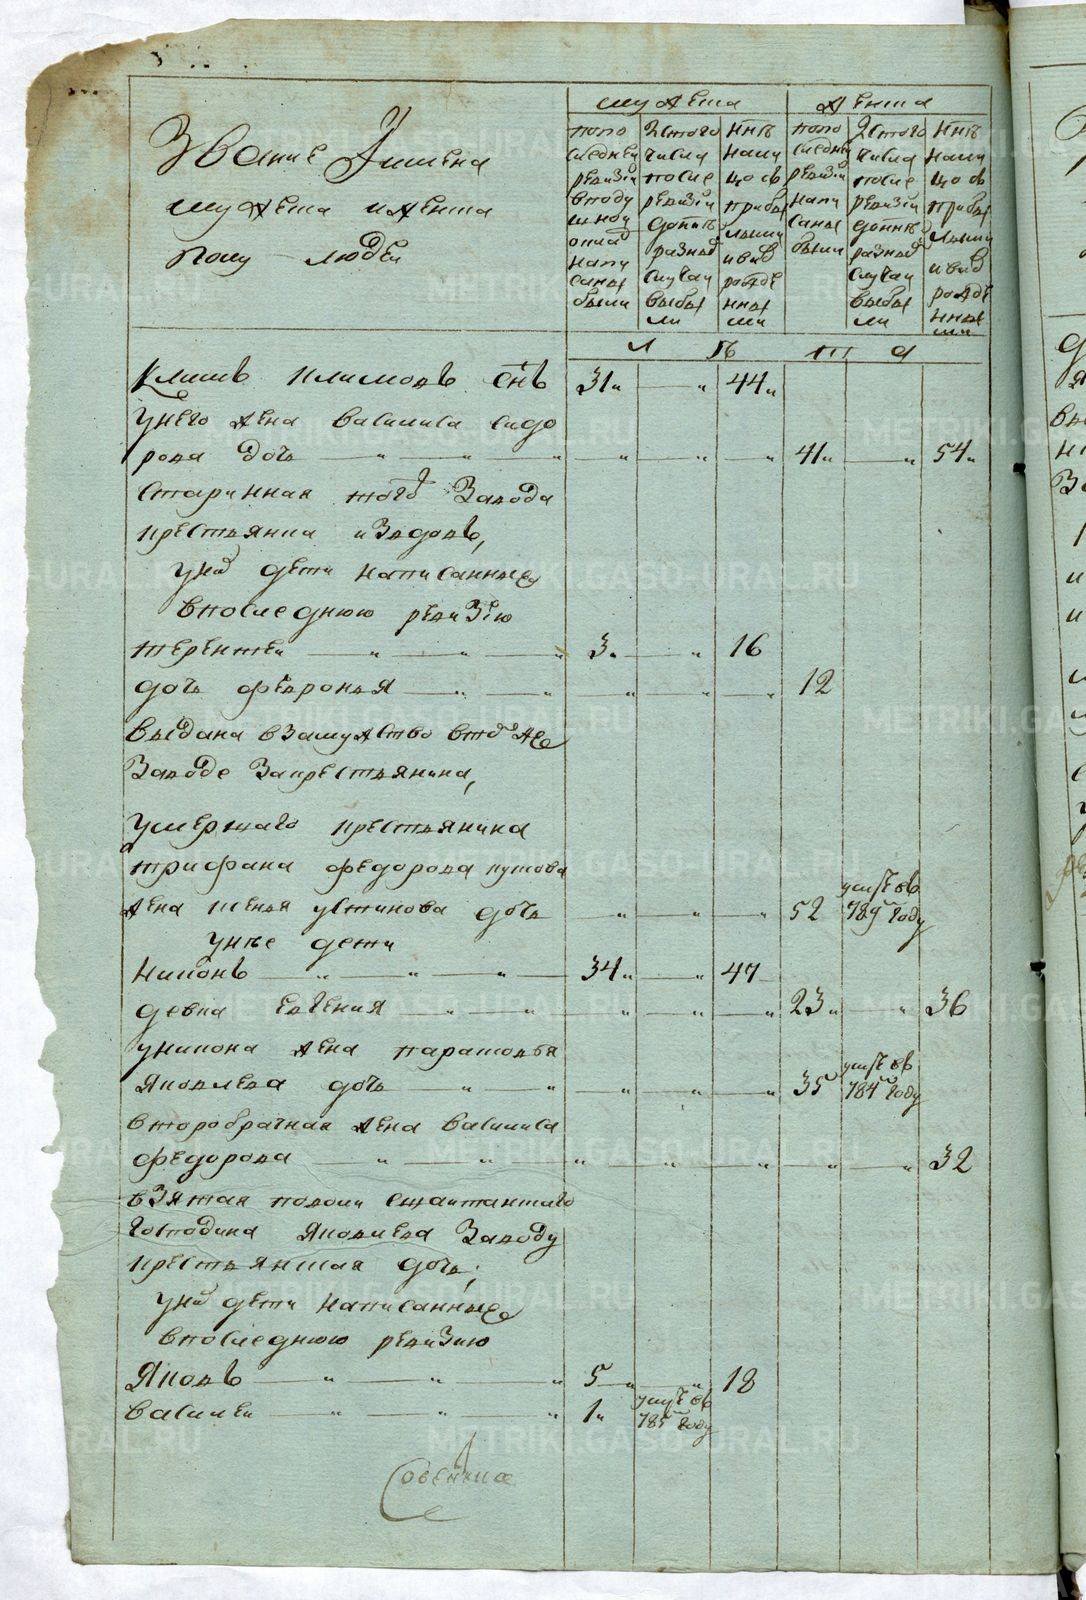 Звание Имена
мужеска и женска
полу людей
мужеска
женска
попо
следней
ревизіи
вподу
шной
оклад
напи
саны
были
Зтого
числа
после
ревизіи
допнѣ
разныѣ
случаи
выбы
ли
Ннѣ
нали
цо съ
прибы
лыми
ивнѡ
рожде
нны
ми
попо
следней
ревизіи
напи
саны
были
Зтого
числа
после
ревизіи
допнѣ
разныѣ
случаи
выбы
ли
Ннѣ
нали
цо съ
прибы
лыми
ивнѡ
рожде
нны
ми
л ѣ т а
Климъ Климовъ снъ 31 „ — „ 44 „
унего жена василиса сидо
рова дочь — „ — „ — „ — „ — „ — „ 41 „ — „ 54 „
старинная того Завода
крестьянка извдовъ,
уних дети написанныя
впоследнюю ревизію
терентей — „ — „ — „ 3 „ — „ 16
дочь февронья — „ — „ „ — „ — „ 12
выдана взамужство втомже
Заводе Закрестьянина,
умершаго крестьянина
трифана федорова кутова
жена устинова дочь „ — „ — „ 52 умре въ 789м году
унее дети
Никонъ — „ — „ — „ 34 „ — „ 47
девка Евгения — „ — „ „ — „ — „ 23 „ — „ 36
уникона жена парасковья
Яковлева дочь — „ — „ „ — „ — „ 35 умре въ 784м году
второбрачная жена василиса
федорова — „ — „ — „ — „ — „ — „ — „ 32
взятая покои сщантанскаго
Господина Яковлева Заводу
крестьянская дочь,
уних дети написанныя
впоследнюю ревизию
Яковъ — „ — „ — „ 5 — „ — „ 18
василей — „ — „ — „ 1 „ умре въ 785м году